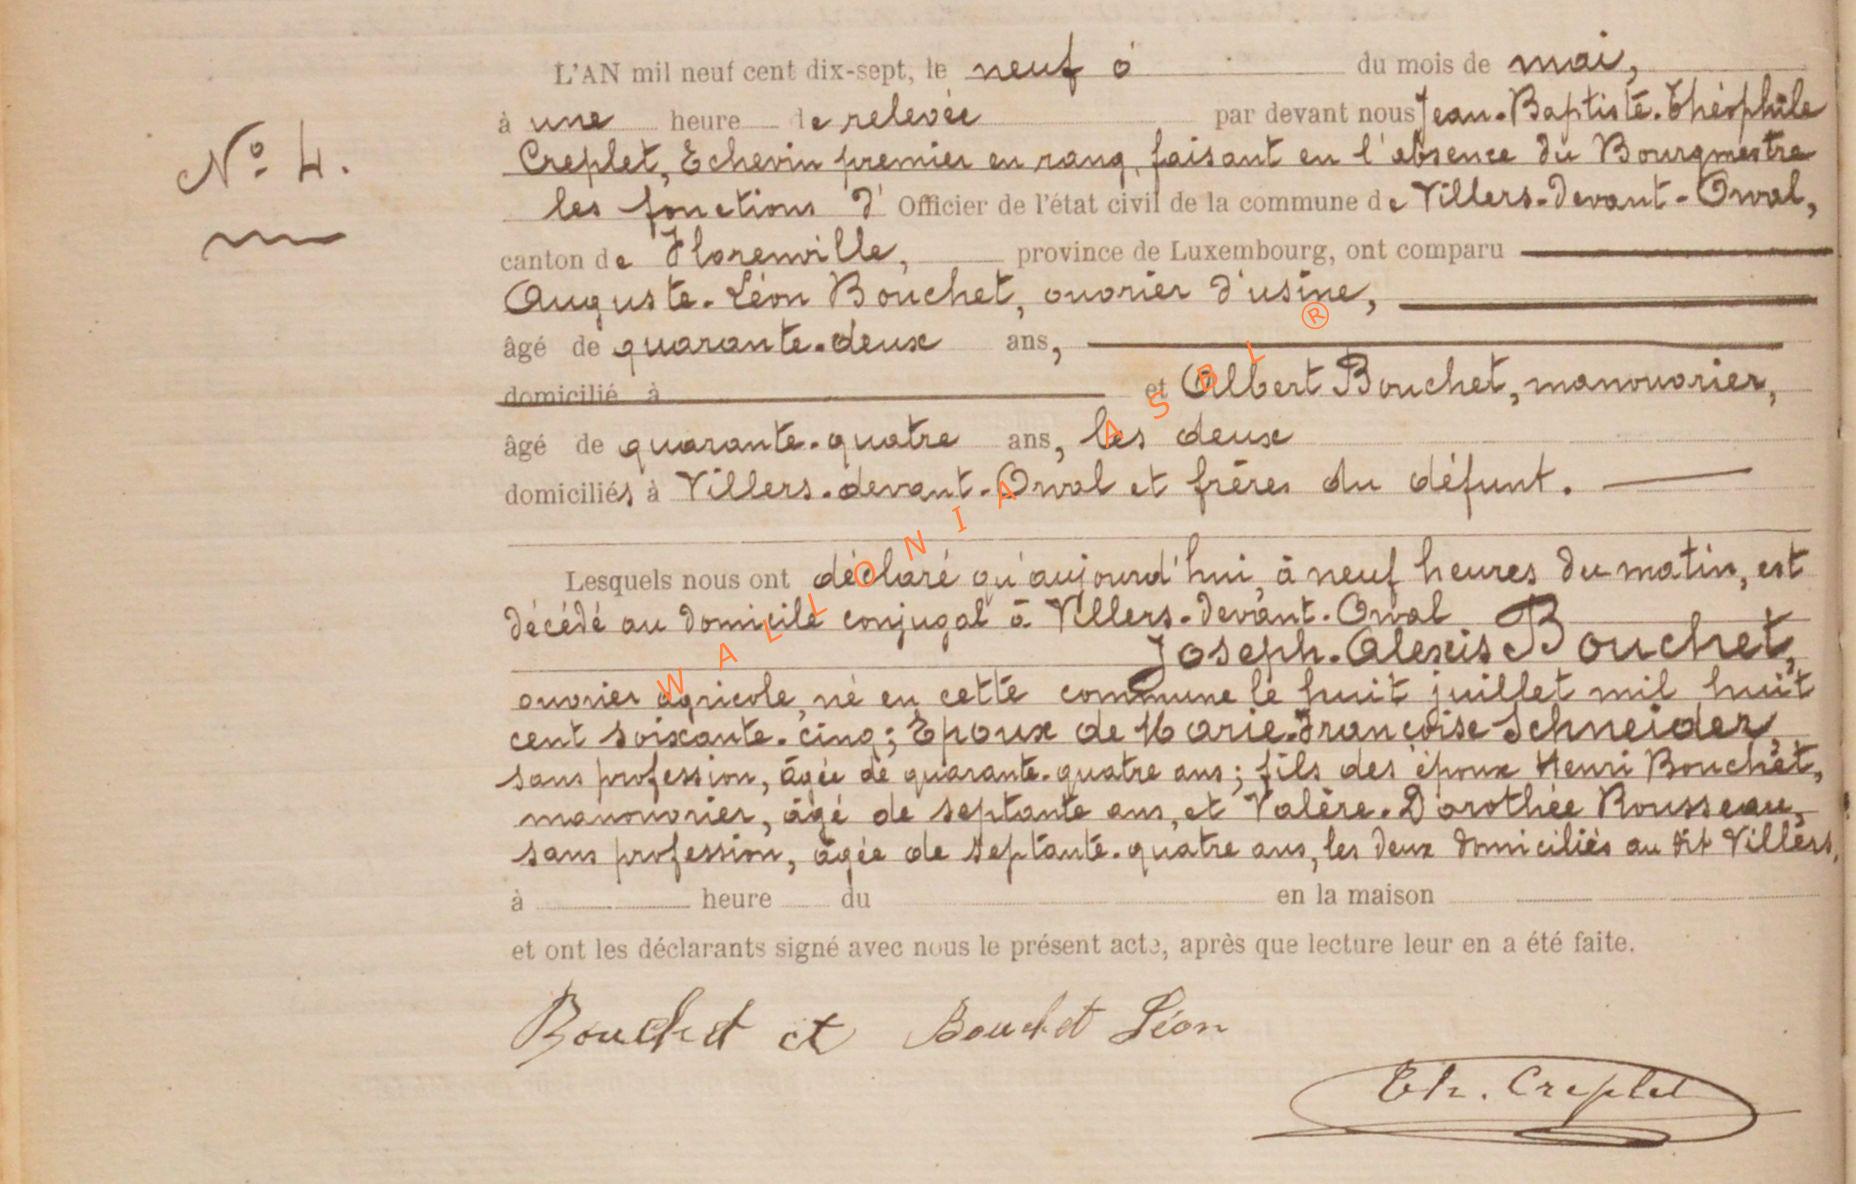 L'AN mil neuf cent dix-sept, le neuf du mois de mai,
à une heure de relevée par devant nous Jean-Baptiste-Théophile
N° 4. Creplet, Echevin premier en rang, faisant en l'absence du Bourgmestre
les fonctions d' Officier de l'état civil de la commune de Villers-devant-Orval,
canton de Florenville, province de Luxembourg, ont comparu
Auguste-Léon Bouchet, ouvrier d'usine,
âgé de quarante-deux ans,
domicilié à et Albert Bouchet, manouvrier,
âgé de quarante-quatre ans, les deux
domiciliés à Villers-devant-Orval et frères du défunt.
Lesquels nous ont déclaré qu'aujourd'hui, à neuf heures du matin, est
décédé au domicile conjugal à Villers-devant-Orval
Joseph-Alexis Bouchet,
ouvrier agricole, né en cette commune le huit juillet mil huit
cent soixante-cinq; Epoux de Marie-Françoise Schneider,
sans profession, âgée de quarante-quatre ans; fils des époux Henri Bouchet,
manouvrier, âgé de septante ans, et Valère-Dorothée Rousseau,
sans profession, âgée de septante-quatre ans, les deux domiciliés au dit Villers.
à heure du en la maison
et ont les déclarants signé avec nous le présent acte, après que lecture leur en a été faite.
Bouchet Bouchet Léon
Th. Creplet
WALLONIA ASBL ®